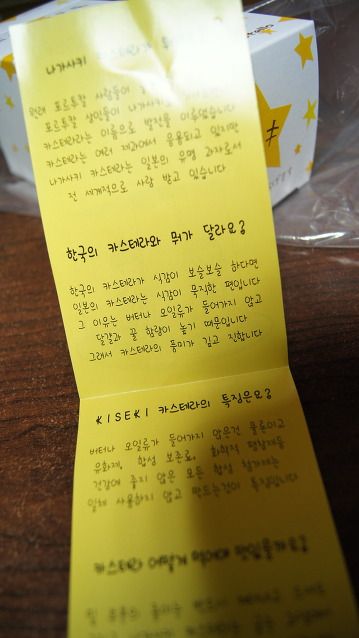 나가사키 카스테라
원래 포르투갈 사람들이
포르투갈 상인들이 나가사키
카스테라라는 이름으로 발전을 이루었습니다
카스테라는 여러 제과에서 응용되고 있지만
나가사키 카스테라는 일본의 유명 과자로서
전 세계적으로 사랑 받고 있습니다
한국의 카스테라와 뭐가 달라요?
한국의 카스테라가 식감이 보슬보슬 하다면
일본의 카스테라는 식감이 묵직한 편입니다
그 이유는 버터나 오일류가 들어가지 않고
달걀과 꿀 함량이 높기 때문입니다
그래서 카스테라의 풍미가 깊고 진합니다
KISEKI 카스테라의 특징은요?
버터나 오일류가 들어가지 않은건 물론이고
유화제, 합성 보존료, 화학적 팽창제등
건강에 좋지 않은 모든 합성 첨가제는
일체 사용하지 않고 만드는것이 특징입니다
카스테라 어떻게 해야 맛있을까요?